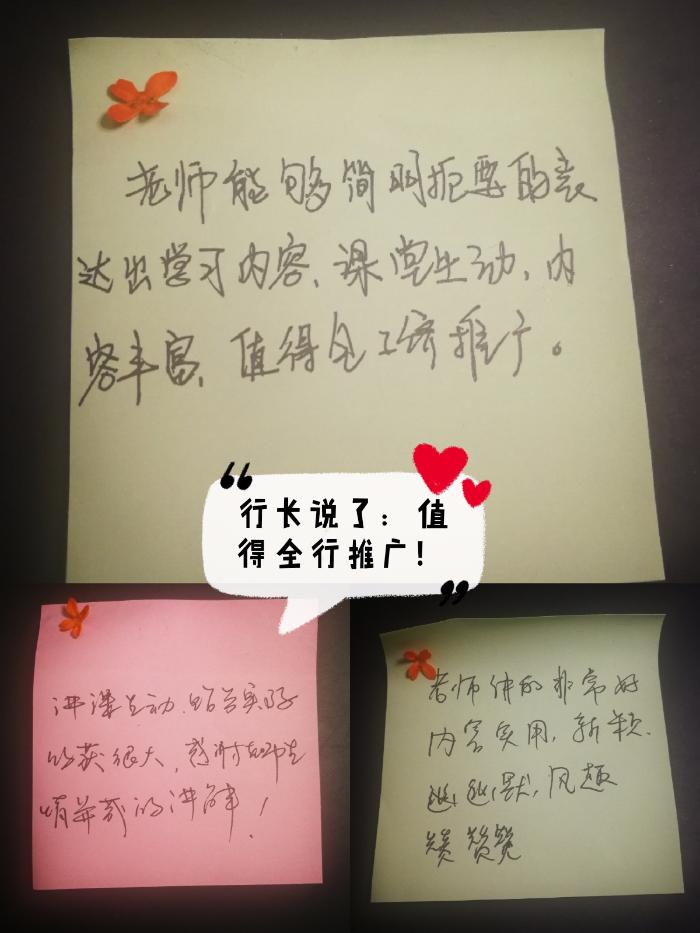 老师能够简明扼要的表
达出学习内容、课堂生动、内
容丰富、值得全行推广。
行长说了：值
得全行推广！
讲课生动、结合实际
收获很大，感谢老师
精益 的讲解！
老师讲的非常好
内容实用、新颖、
幽默，风趣
赞赞赞